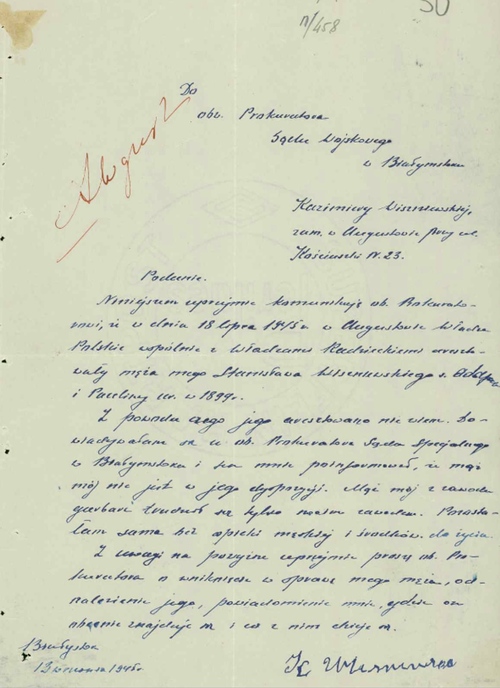 30
II/458
August
Do
obw. Prokuratora
Sądu Wojskowego
w Białymstoku
Kazimiery Wiszniewskiej,
zam. w Augustowie przy ul.
Kościuszki N. 23.
Podanie.
Niniejszym uprzejmie komunikuję ob. Prokurato-
rowi, iż w dniu 18 lipca 1945 r. w Augustowie Władze
Polskie wspólnie z Władzami Radzieckiemi areszto-
wały męża mego Stanisława Wiszniewskiego s. Adolfa
i Pauliny ur. w 1899 r.
Z powodu czego jego aresztowano nie wiem. Do-
wiadywałam się u ob. Prokuratora Sądu Specjalnego
w Białymstoku i ten mnie poinformował, że mąż
mój nie jest w jego dyspozycji. Mąż mój z zawodu
garbarz trudnił się tylko swoim zawodem. Pozosta-
łam sama bez opieki męskiej i środków do życia.
Z uwagi na powyższe uprzejmie proszę ob. Pro-
kuratora o wniknięcie w sprawę mego męża, od-
nalezienie jego, powiadomienie mnie, gdzie on
obecnie znajduje się i co z nim dzieje się.
Białystok
13 września 1945 r.
K Wiszniewska